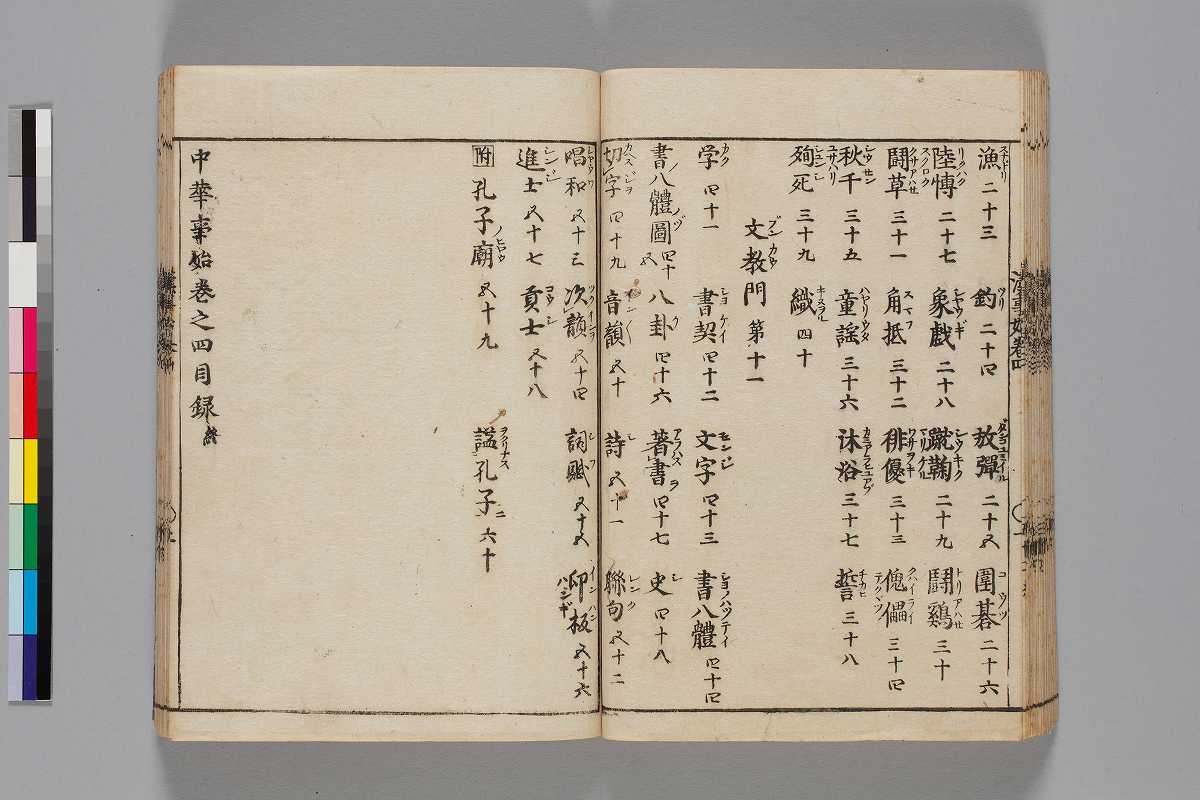 漁 二十三 釣 二十四 放彈 二十五 圍碁 二十六
陸愽 二十七 象戯 二十八 蹴鞠 二十九 鬪鷄 三十
鬪草 三十一 角抵 三十二 俳優 三十三 傀儡 三十四
秋千 三十五 童謡 三十六 沐浴 三十七 誓 三十八
殉死 三十九 織 四十
文教門 第十一
学 四十一 書契 四十二 文字 四十三 書八體 四十四
書八體圖 四十五 八卦 四十六 著書 四十七 史 四十八
切字 四十九 音韻 五十 詩 五十一 聯句 五十二
唱和 五十三 次韻 五十四 詞賦 五十五 印板 五十六
進士 五十七 貢士 五十八
附 孔子廟 五十九 諡孔子 六十
中華事始巻之四目録 終